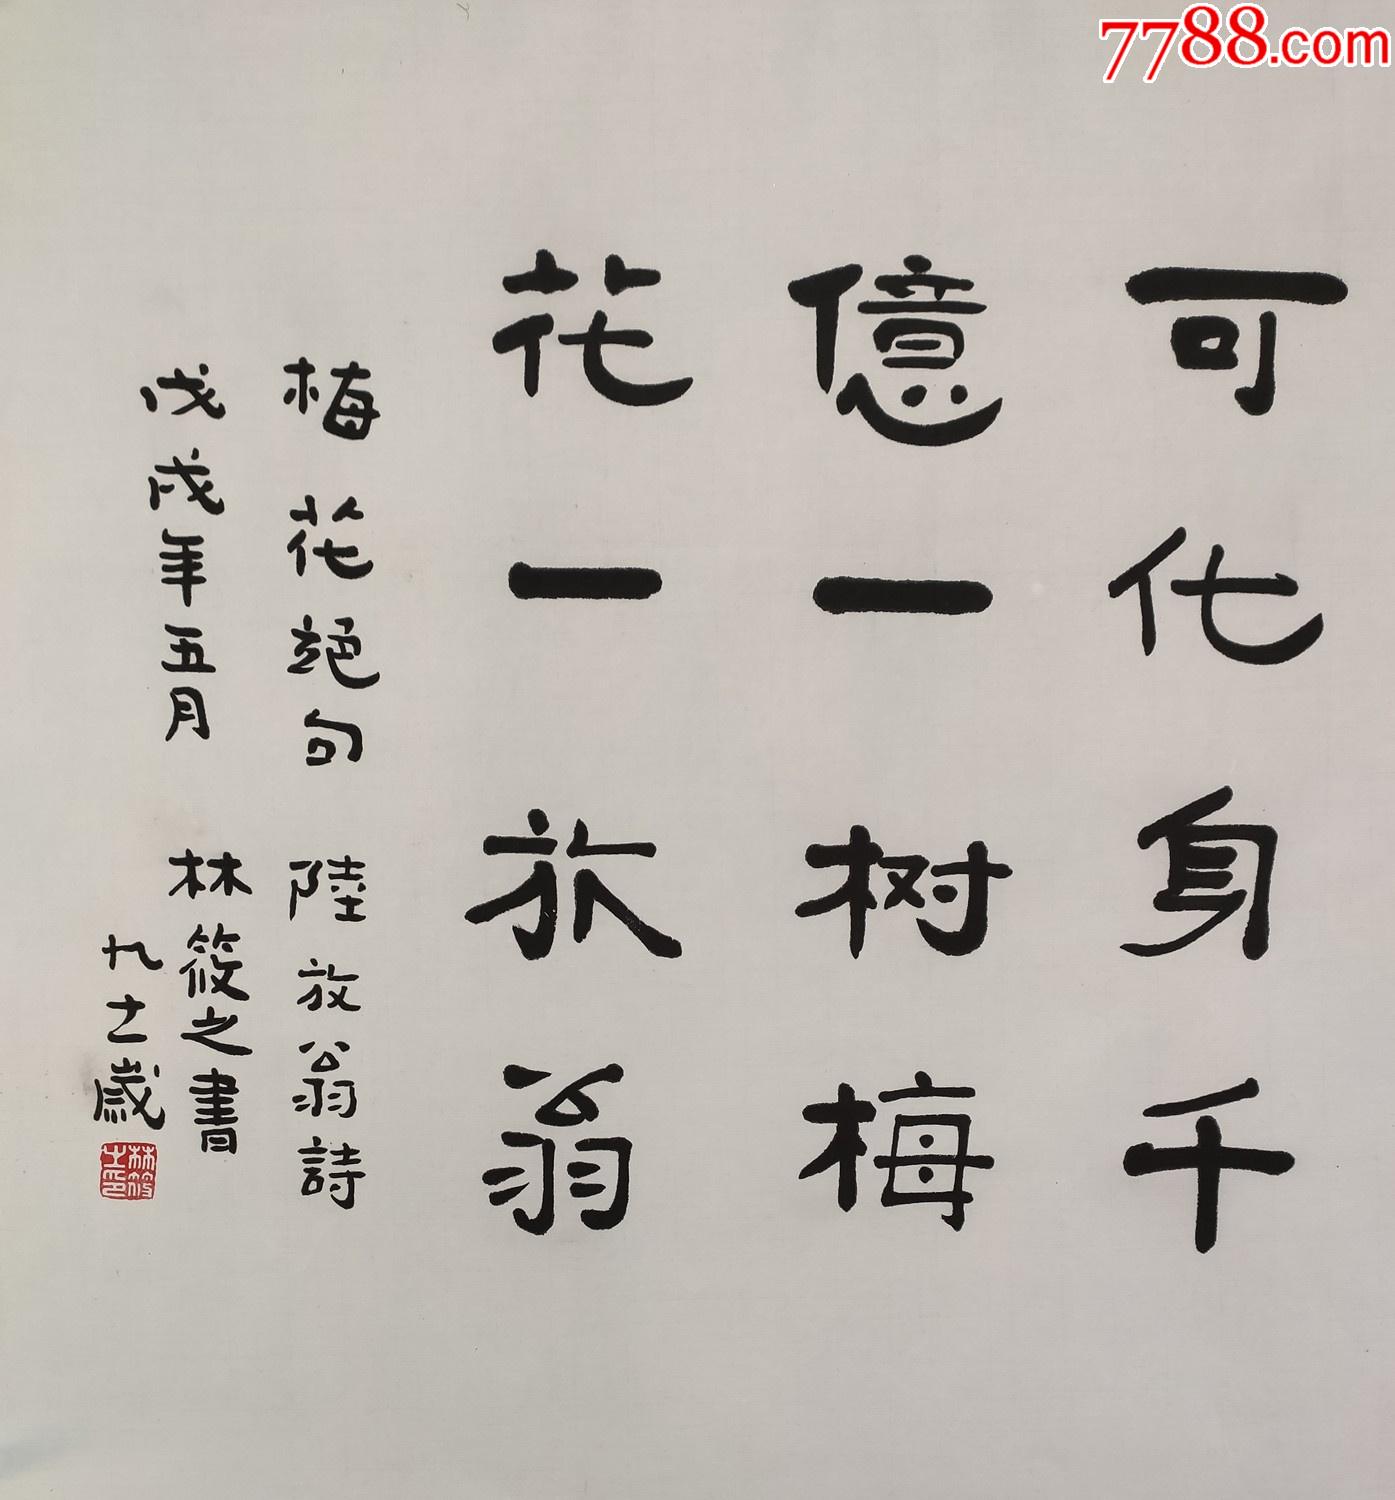 7788.com
可化身千
億一树梅
花一放翁
梅花絕句 陸放翁詩
戊戌年五月 林筱之書
九十一歲
林筱之印